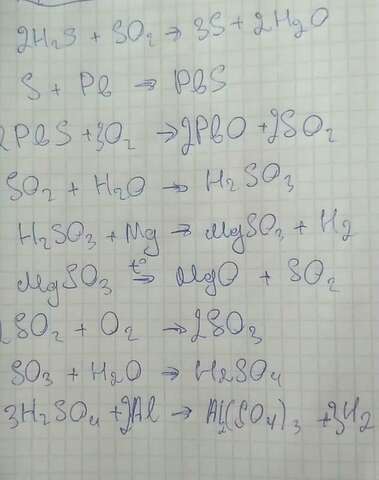 2H₂S + SO₂ → 3S + 2H₂O
S + Pb → PbS
2PbS + 3O₂ → 2PbO + 2SO₂
SO₂ + H₂O → H₂SO₃
H₂SO₃ + Mg → MgSO₃ + H₂
MgSO₃ t°→ MgO + SO₂
2SO₂ + O₂ → 2SO₃
SO₃ + H₂O → H₂SO₄
3H₂SO₄ + 2Al → Al₂(SO₄)₃ + 3H₂